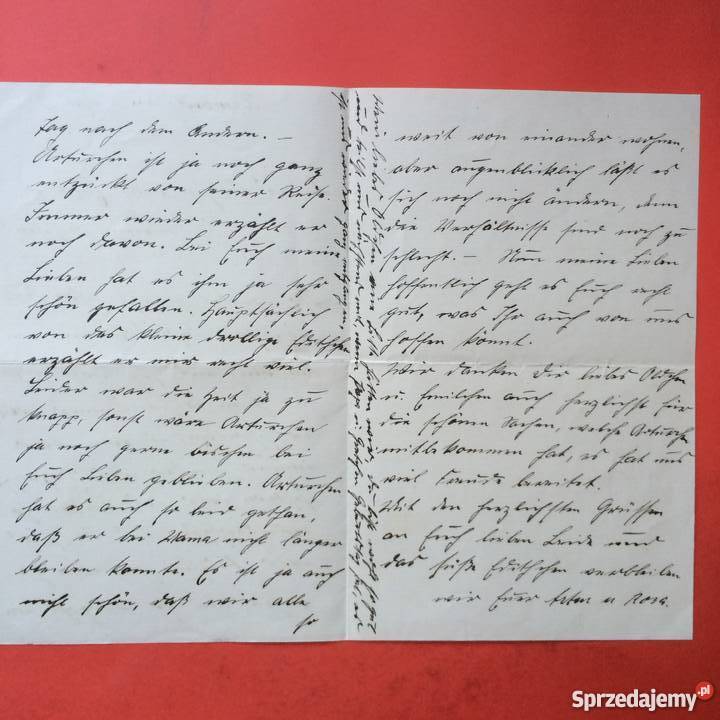 Tag nach dem Andern. —
Arturchen ist ja noch ganz
entzückt von seiner Reise.
Immer wieder erzählt er
noch davon. Bei Euch meine
Lieben hat es ihm ja sehr
schön gefallen. Hauptsächlich
von das kleine drollige Edithchen
erzählt er mir recht viel.
Leider war die Zeit ja zu
knapp, sonst wäre Arturchen
ja noch gerne bischen bei
Euch Lieben geblieben. Arturchen
hat es auch so leid gethan,
daß er bei Mama nicht länger
bleiben konnte. Es ist ja auch
nicht schön, daß wir alle
so
weit von einander wohnen,
aber augenblicklich läßt es
sich noch nicht ändern, denn
die Verhältnisse sind noch zu
schlecht. — Nun meine Lieben
hoffentlich geht es Euch recht
gut, was Ihr auch von uns
hoffen könnt.
Wir danken Dir liebes Oldchen
u. Emilchen auch herzlichst für
die schönen Sachen, welche Arturchen
mitbekommen hat, es hat uns
viel Freude bereitet.
Mit den herzlichsten Grüssen
an Euch lieben Beide und
das süße Edithchen verbleiben
wir Euer Artur u Rosa.
Sprzedajemy.pl